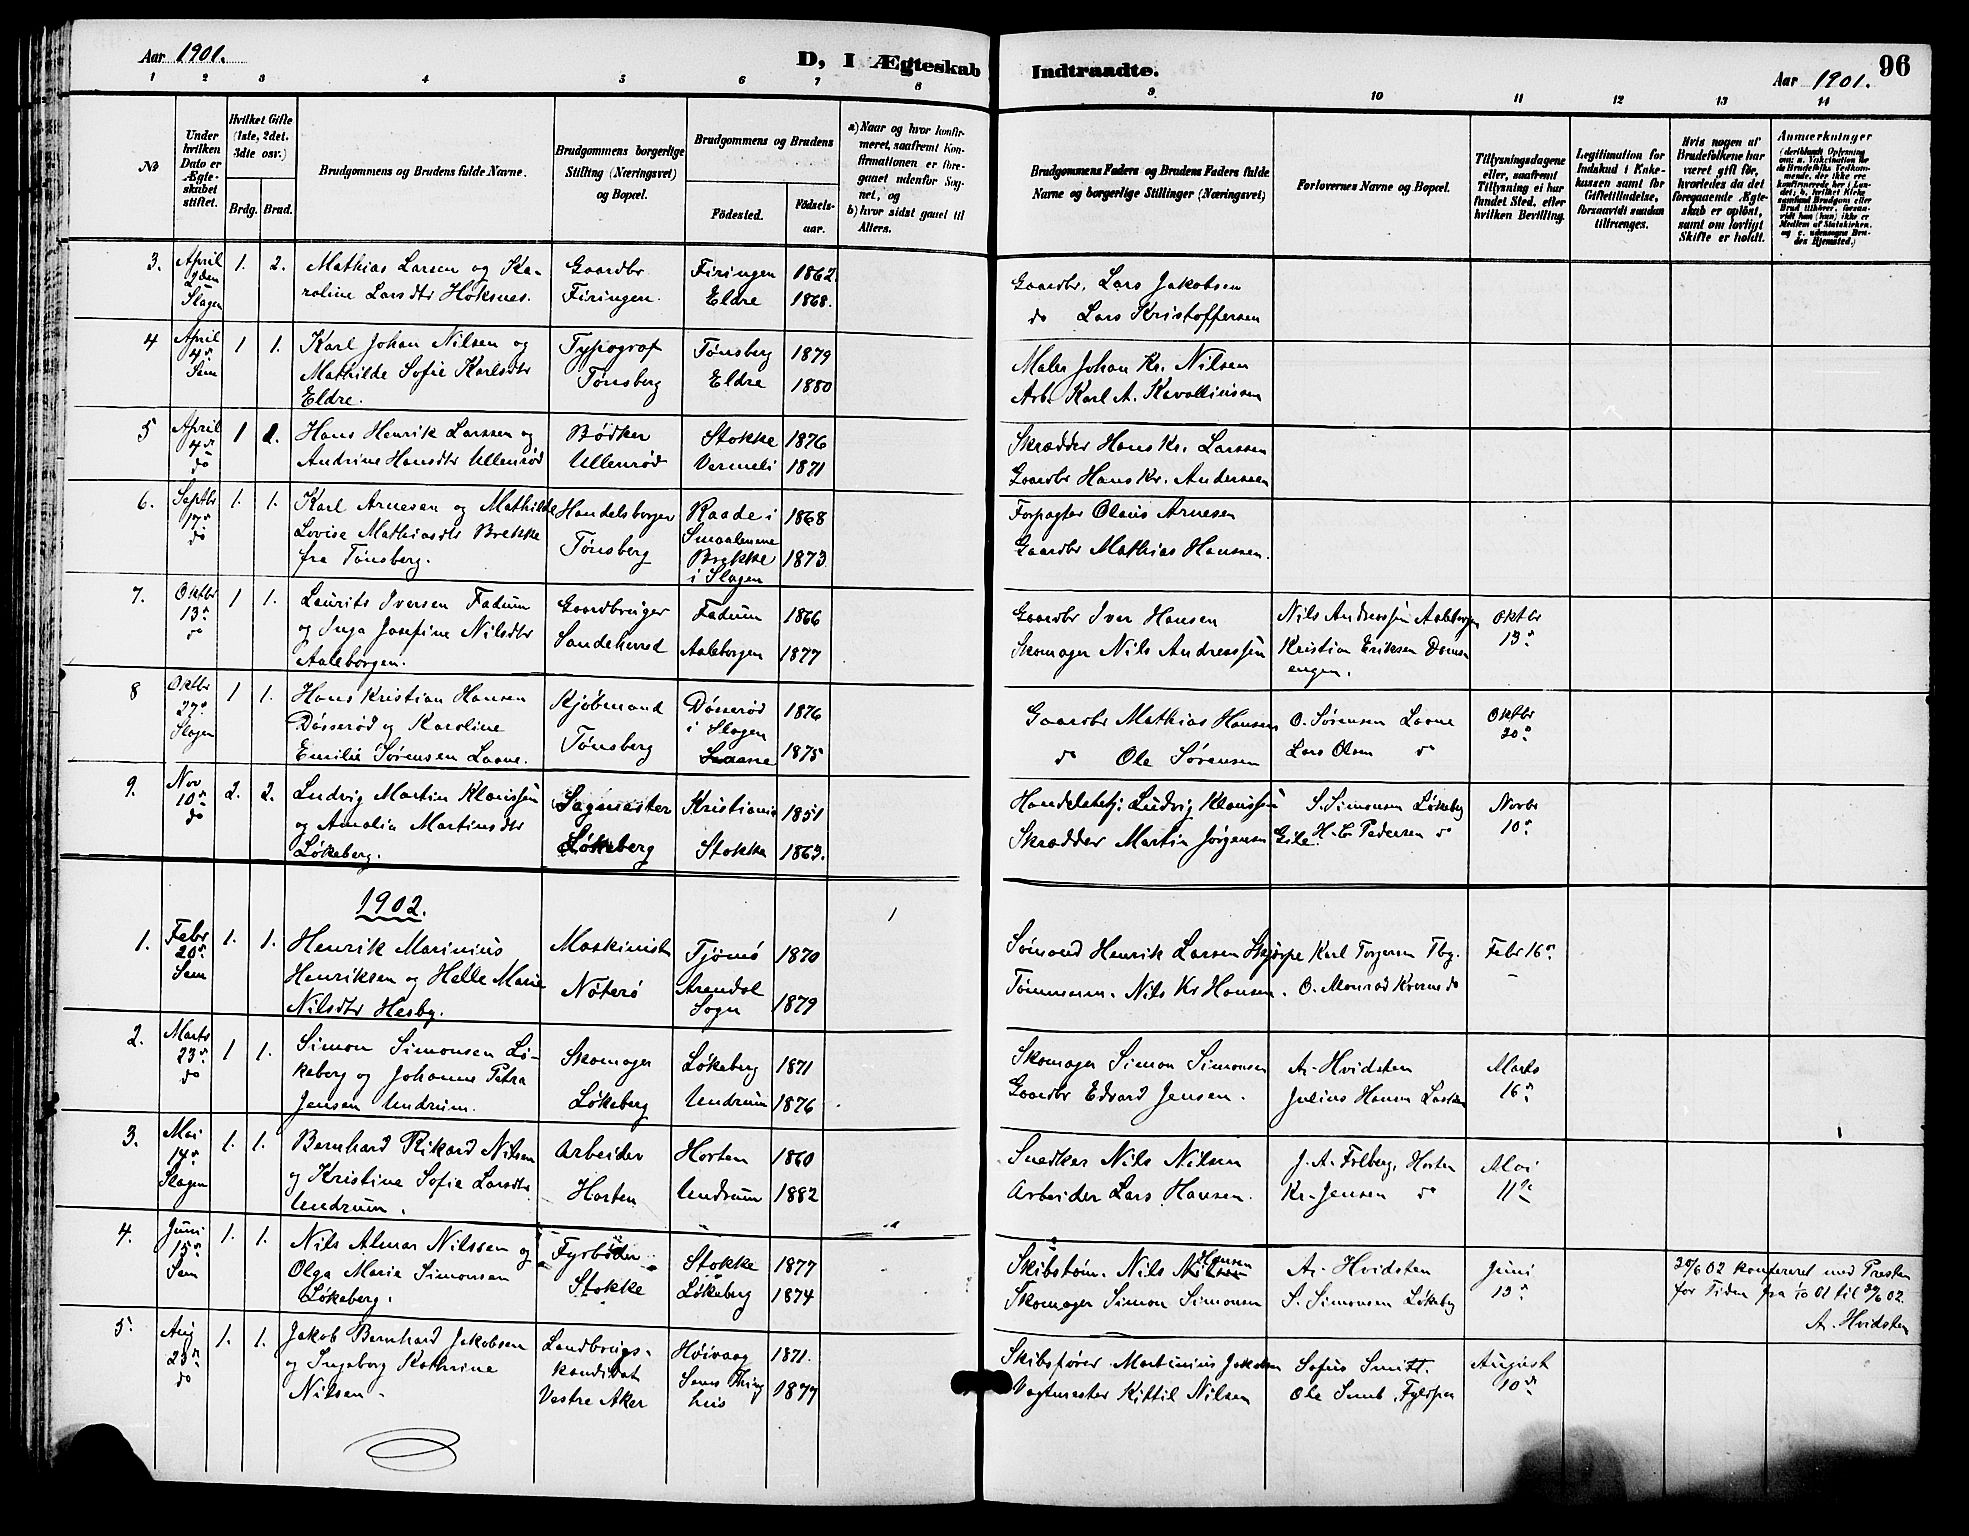 Aar 1901.
D, I Ægteskab Indtraadte.
96
Aar 1901.
1 2 3 4 5 6 7 8 9 10 11 12 13 14
No
Under hvilken Dato er Ægteskabet stiftet.
Hvilket Gifte (1ste, 2det. 3die osv.)
Brdg. Brud.
Brudgommens og Brudens fulde Navne.
Brudgommens borgerlige Stilling (Næringsvei) og Bopæl.
Brudgommens og Brudens
Fødested.
Fødselsaar.
a) Naar og hvor konfirmeret, saafremt Konfirmationen er foregaaet udenfor Sognet, og
b) hvor sidst gaaet til Alters.
Brudgommens Faders og Brudens Faders fulde Navne og borgerlige Stillinger (Næringsvei)
Forlovernes Navne og Bopæl.
Tillysningsdagene eller, saafremt Tillysning ei har fundet Sted, efter hvilken Bevilling.
Legitimation for Indskud i Enkekassen samt for Giftetilladelse, forsaavidt saadan tiltrænges.
Hvis nogen af Brudefolkene har været gift før, hvorledes da det foregaaende Ægteskab er opløst, samt om lovligt Skifte er holdt.
Anmærkninger
3. April Slagen 1. 2. Mathias Larsen og Karoline Larsdtr Høksnes. Gaardbr Firingen. Firingen 1862. Eldre 1868. Gaardbr. Lars Jakobsen
do Lars Kristoffersen
4 April 4de Sem 1 1. Karl Johan Nilsen og Mathilde Sofie Karlsdtr Eldre. Typograf Tønsberg Tønsberg 1879 Eldre 1880 Maler Johan Kr. Nilsen
Arb. Karl A. Kavallinssen
5 April 4de do 1 Hans Henrik Larssen og Andrine Hansdtr Ullenrød Bødker Ullenrød Stokke 1876 Vermeli 1871 Skrædder Hans Kr. Larssen
Gaardbr Hans Kr. Anderssen
6. Septbr 17de do 1. 1. Karl Arnesen og Mathilde Lovise Mathiasdtr Brekke fra Tønsberg. Handelsborger Tønsberg Raade i Smaalenene 1868 Brekke i Slagen 1873 Forpagter Olaus Arnesen
Gaardbr Mathias Hanssen.
7. Oktbr 13de do 1 1. Laurits Iversen Fadum og Inga Josefine Nilsdtr Aaleborgen. Gaardbruger Sandeherred Fadum 1866 Aaleborgen 1877 Gaardbr Iver Hansen Nils Andressen Aaleborgen Oktbr 13de
Skomager Nils Andressen Kristian Eriksen
8 Oktbr 27de Slagen 1 1. Hans Kristian Hansen Døsserød og Karoline Emilie Sørensen Laane. Kjøbmand Tønsberg Døsserød i Slagen 1876 Laane 1875 Gaardbr Mathias Hansen O. Sørensen Laane Oktbr 20de
do Ole Sørensen Lars Olsen do
9. Nov 10de do 2. 2. Ludvig Martin Klaussen og Amalia Martinsdtr Løkeberg. Sagmester Løkeberg Kristiania 1851 Stokke 1863. Handelsbetj: Ludvig Klaussen S. Simonsen Løkeberg Novbr 10de
Skrædder Martin Jørgensen Gile H. C. Pedersen do
1902.
1. Febr 20de Sem 1. 1. Henrik Marinius Henriksen og Helle Marie Nilsdtr Hesby. Maskinist Nøterø Tjømø 1870 Arendal Sogn 1879 Sømand Henrik Larsen Karl Torgersen Tbg. Febr 16de
Tømmerm. Nils Kr Hansen. O. Monrad do
2. Marts 23de do 1 1. Simon Simonsen Løkeberg og Johanne Petra Jensen Undrum. Skomager Løkeberg Løkeberg 1871 Undrum 1876 Skomager Simon Simonsen A. Hvidsten Marts 16de
Gaardbr Edvard Jensen. Julius Hansen
3. Mai 14de Slagen 1. 1. Bernhard Rikard Nilsen og Kristine Sofie Larsdtr Undrum. Arbeider Horten Horten 1860 Undrum 1882 Snedker Nils Nilsen J. A. Horten Mai 11te
Arbeider Lars Hansen. Kr. Jensen do
4. Juni 15de Sem 1. 1. Nils Almar Nilssen og Olga Maria Simonsen Løkeberg. Fyrbøder Stokke Stokke 1877 Løkeberg 1874 Skibstøm. Nils Hansen A. Hvidsten Juni 15de
Skomager Simon Simonsen S. Simonsen Løkeberg
30/6 02 konfereret med Presten for Tiden fra 01 til 30/6 02.
A. Hvidsten
5. Aug 23de do 1. 1. Jakob Bernhard Jakobsen og Ingeborg Kathrine Nilsen. Landbrugskandidat Vestre Aker Høivaag 1871. Sems Thinghus 1877 Skibsfører Martinius Jakobsen Sofus Smitt. August 10de
Vagtmester Kittil Nilsen Ole